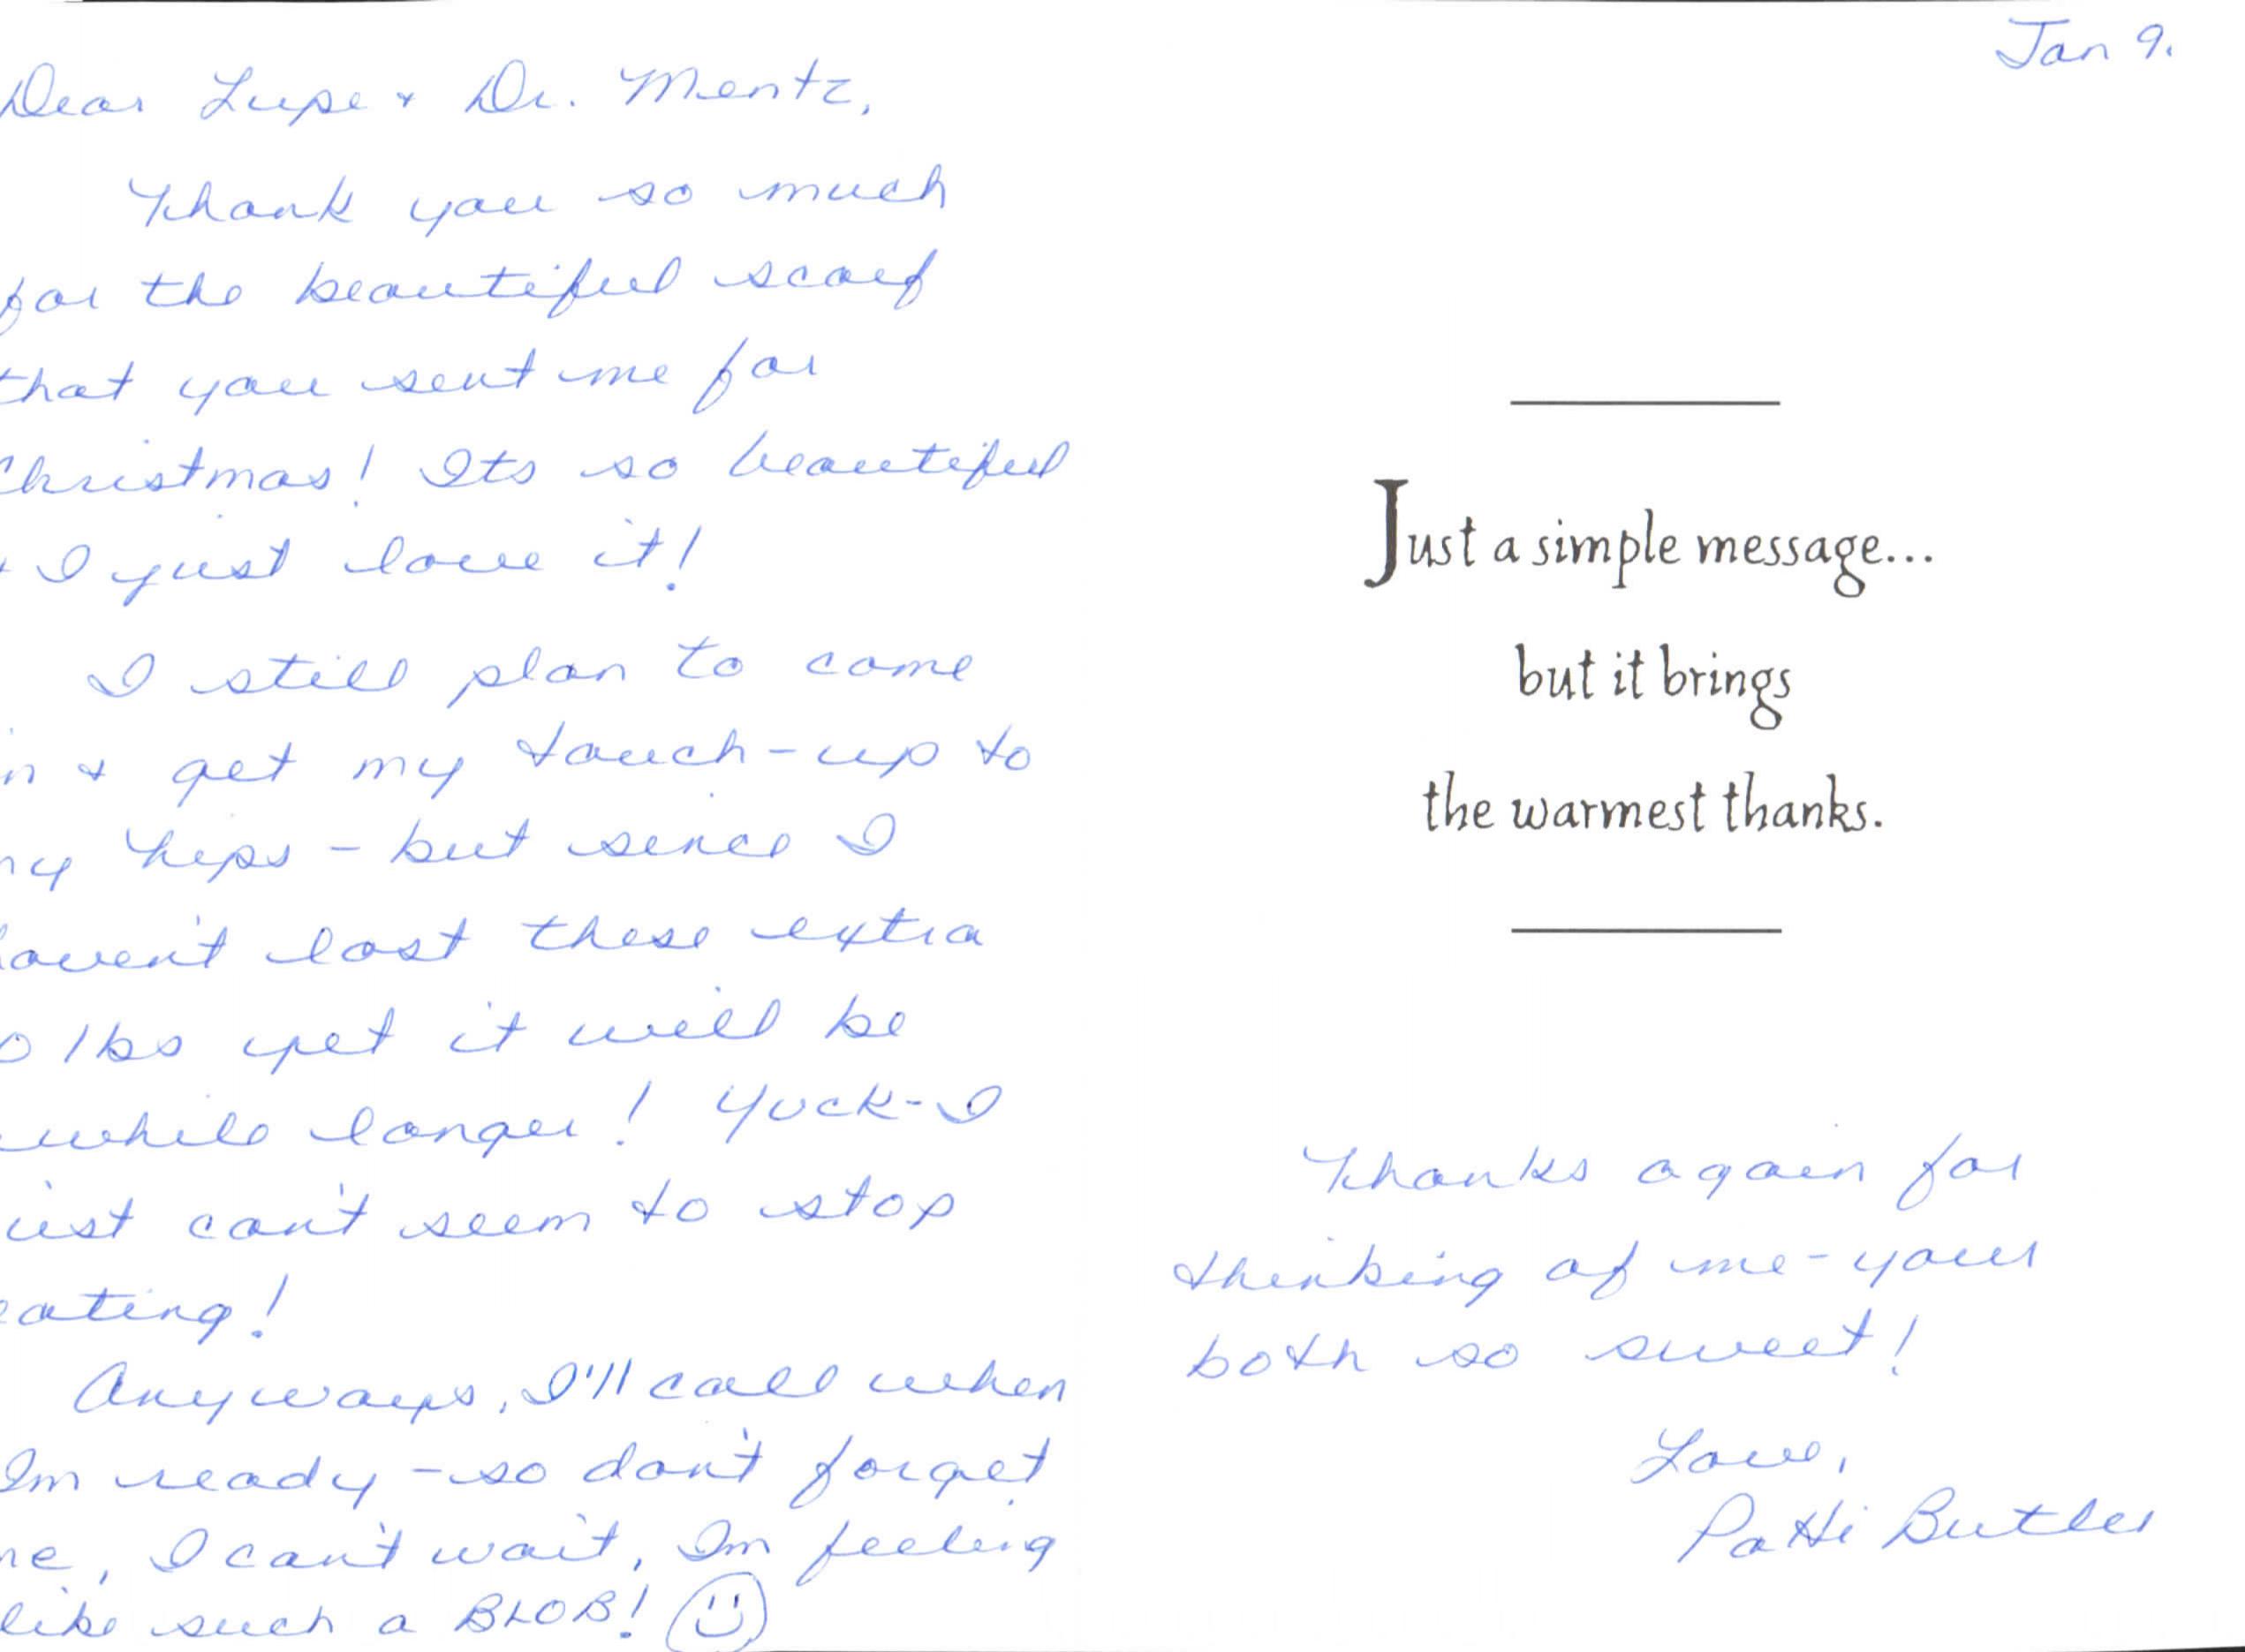 Dear Lupe & Dr. Mentz,
Thank you so much
for the beautiful scarf
that you sent me for
Christmas! Its so beautiful
& I just love it!
I still plan to come
in & get my touch-up to
my hips - but since I
haven't lost these extra
0 lbs yet it will be
while longer! Yuck - I
just can't seem to stop
eating!
Anyways, I'll call when
Im ready - so don't forget
me, I can't wait, Im feeling
like such a BLOB!
Jan 9.
Just a simple message...
but it brings
the warmest thanks.
Thanks again for
thinking of me - your
both so sweet!
Love,
Patti Butler